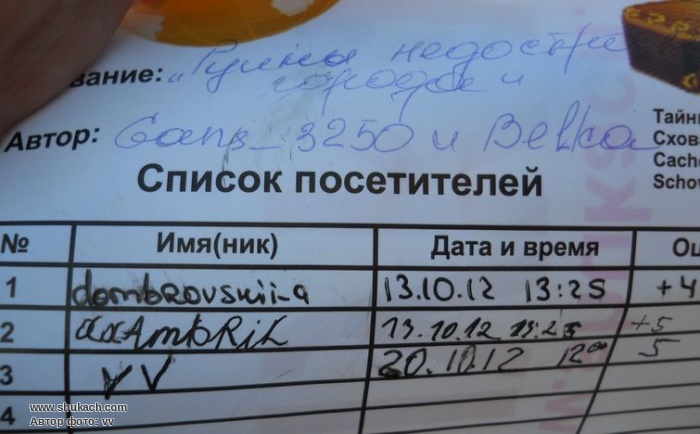 вание: „Руины недостр
городка"
Автор: Gans_3250 и Belka
Тайни
Схова
Cache
Schov
Список посетителей
№ Имя(ник) Дата и время Оц
1 dombrovskii-a 13.10.12 13:25 +4
2 13.10.12 13:25 +5
3 VV 20.10.12 12⁰⁰ 5
4
www.shukach.com
Автор фото: vv